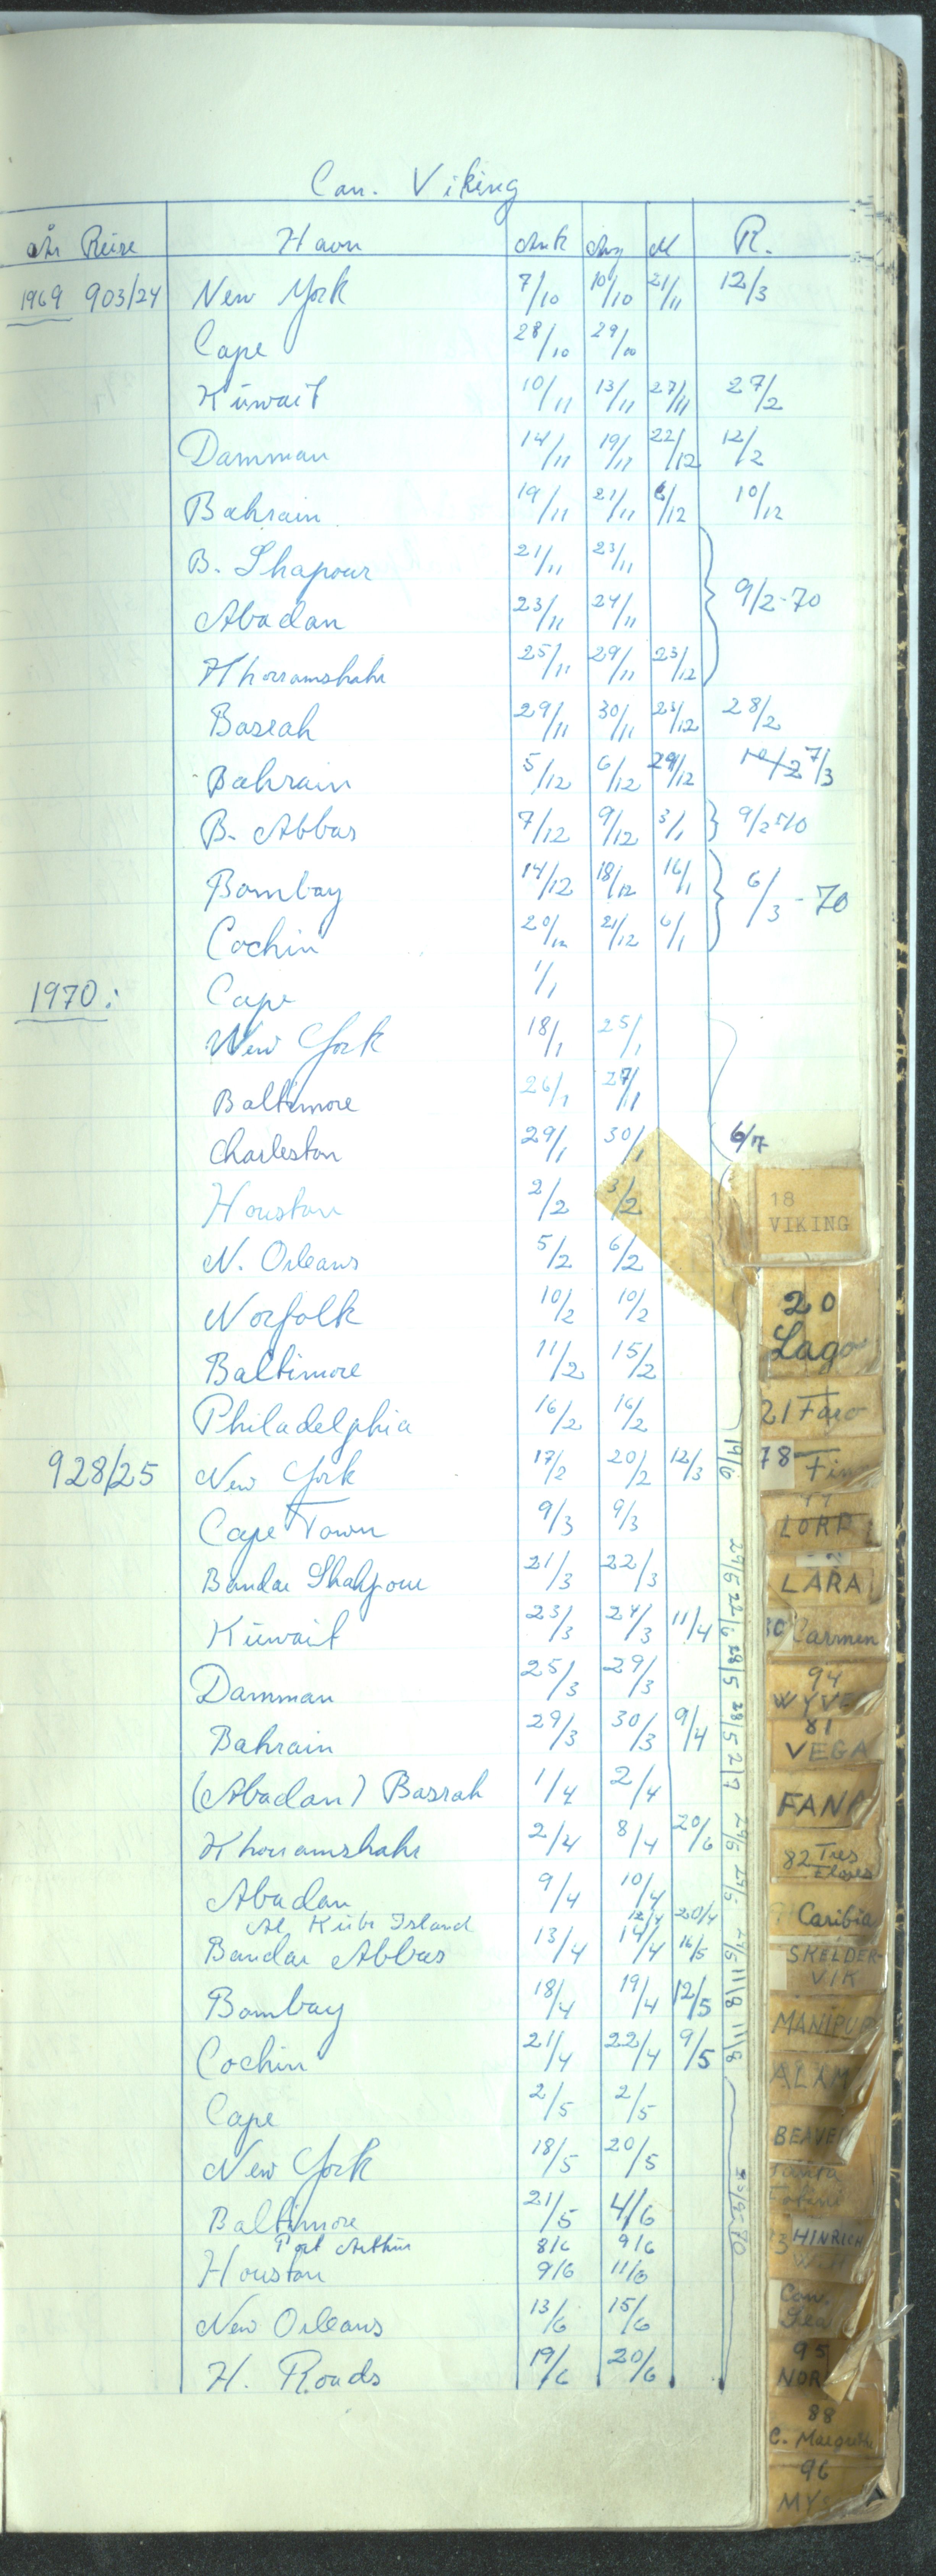 Can. Viking
År Reise Havn Ank Avg M R.
1969 903/24 New York 7/10 10/10 21/11 12/3
Cape 28/10 29/10
Kuwait 10/11 13/11 27/11 27/2
Damman 14/11 19/11 22/12 12/2
Bahrain 19/11 21/11 6/12 10/12
B. Shapour 21/11 23/11
Abadan 23/11 24/11 9/2-70
Khorramshahr 25/11 29/11 23/12
Basrah 29/11 30/11 23/12 28/2
Bahrain 5/12 6/12 29/12 7/3
B. Abbas 7/12 9/12 3/1 9/2-70
Bombay 14/12 18/12 16/1 6/3-70
Cochin 20/12 21/12 6/1
1970: Cape 1/1
New York 18/1 25/1
Baltimore 26/1 27/1
Charleston 29/1 30/1 6/7
Houston 2/2 3/2
N. Orleans 5/2 6/2
Norfolk 10/2 10/2
Baltimore 11/2 15/2
Philadelphia 16/2 16/2
928/25 New York 17/2 20/2 12/3 19/6
Cape Town 9/3 9/3
Bandar Shahpour 21/3 22/3 29/5
Kuwait 23/3 24/3 11/4 22/6
Damman 25/3 29/3 28/5
Bahrain 29/3 30/3 9/4 28/5
(Abadan) Basrah 1/4 2/4 2/7
Khorramshahr 2/4 8/4 20/6 29/5
Abadan 9/4 10/4 29/5
Al Kubr Island 12/4 20/4
Bandar Abbas 13/4 14/4 16/5 29/5
Bombay 18/4 19/4 12/5 11/8
Cochin 21/4 22/4 9/5 11/8
Cape 2/5 2/5
New York 18/5 20/5
Baltimore 21/5 4/6
Port Arthur 8/6 9/6
Houston 9/6 11/6
New Orleans 13/6 15/6
H. Roads 19/6 20/6
18
VIKING
20
Lago
21 Faro
78
LARA
Carmen
94
81
VEGA
82 Tres
Caribia
SKELDER-
VIK
HINRICH
95
88
C. Margrethe
96